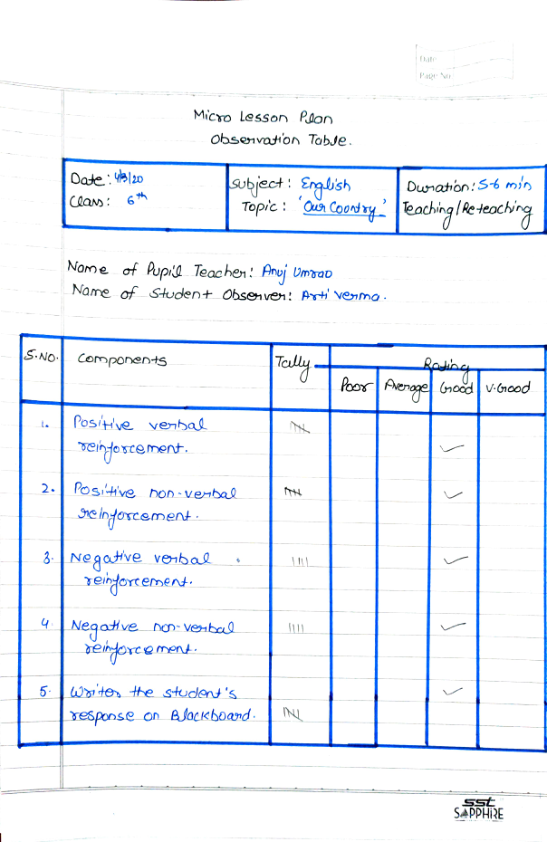 Date
Page No.
Micro Lesson Plan
Observation Table.
Date: 4/3/20 Subject: English Duration: 5-6 min
Class: 6th Topic: 'Our Coontry' Teaching/Re teaching
Name of Pupil Teacher: Anuj Umrao
Name of Student Observer: Arti Verma.
S.NO. Components Tally Rating
Poor Average Good V.Good
1. Positive verbal
reinforcement.
2. Positive non-verbal
reinforcement.
3. Negative verbal
reinforcement.
4. Negative non-verbal
reinforcement.
5. Writes the student's
response on Blackboard.
sst
SAPPHIRE